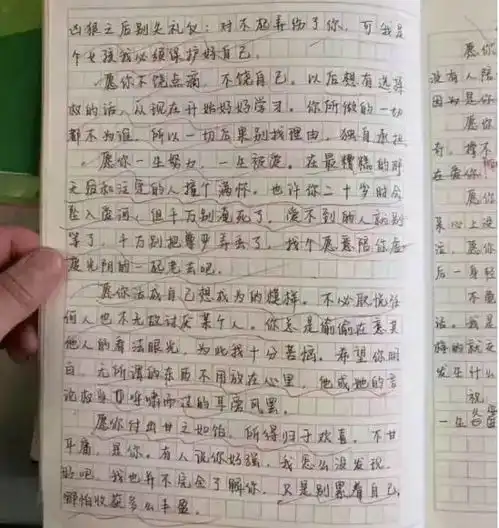 凶狠之后别失礼仪：对不起弄伤了你，可我是
个女孩我必须保护好自己。
愿你不饶点滴，不饶自己。以后想有选择
权的话，从现在开始好好学习。你所做的一切
都不为谁，所以一切后果别找理由，独自承担。
愿你一生努力，一生被爱。在最糟糕的那
天后和注定的人撞个满怀。也许你二十岁时会
坠入爱河，但千万别淹死了，等不到的人就别
等了，千万别把尊严弄丢了，找个愿意陪你虚
度光阴的一起老去吧。
愿你活成自己想成为的模样。不必取悦任
何人也不无故讨厌某个人。你总是偷偷在意其
他人的看法眼光，为此我十分苦恼。希望你明
白，无所谓的东西不用放在心里，他或她的言
论权当呼啸而过的耳旁风罢。
愿你付出甘之如饴，所得归于欢喜。不甘
平庸，是你。有人说你好强，我怎么没发现。
好吧，我也并不完全了解你，只是别累着自己，
哪怕收获多么丰盈。
愿你
没有人陪
因为是你
愿你
愿你
后一身轻
不
话。我是
发生什么
祝
一生